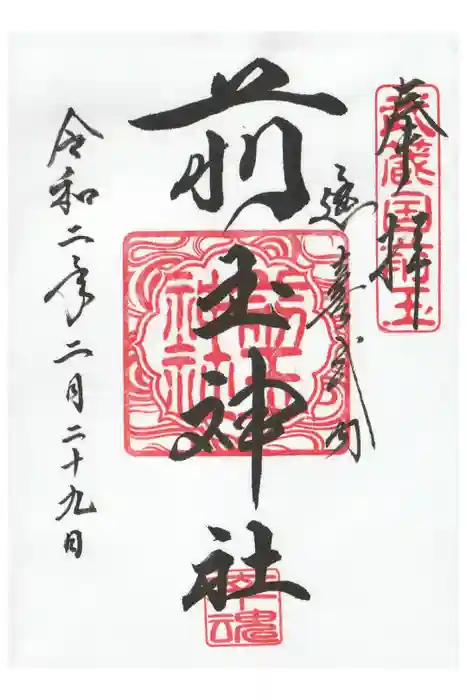 奉拝
武蔵国前玉
延喜式内
前玉神社
前玉神社
幸魂
令和二年二月二十九日